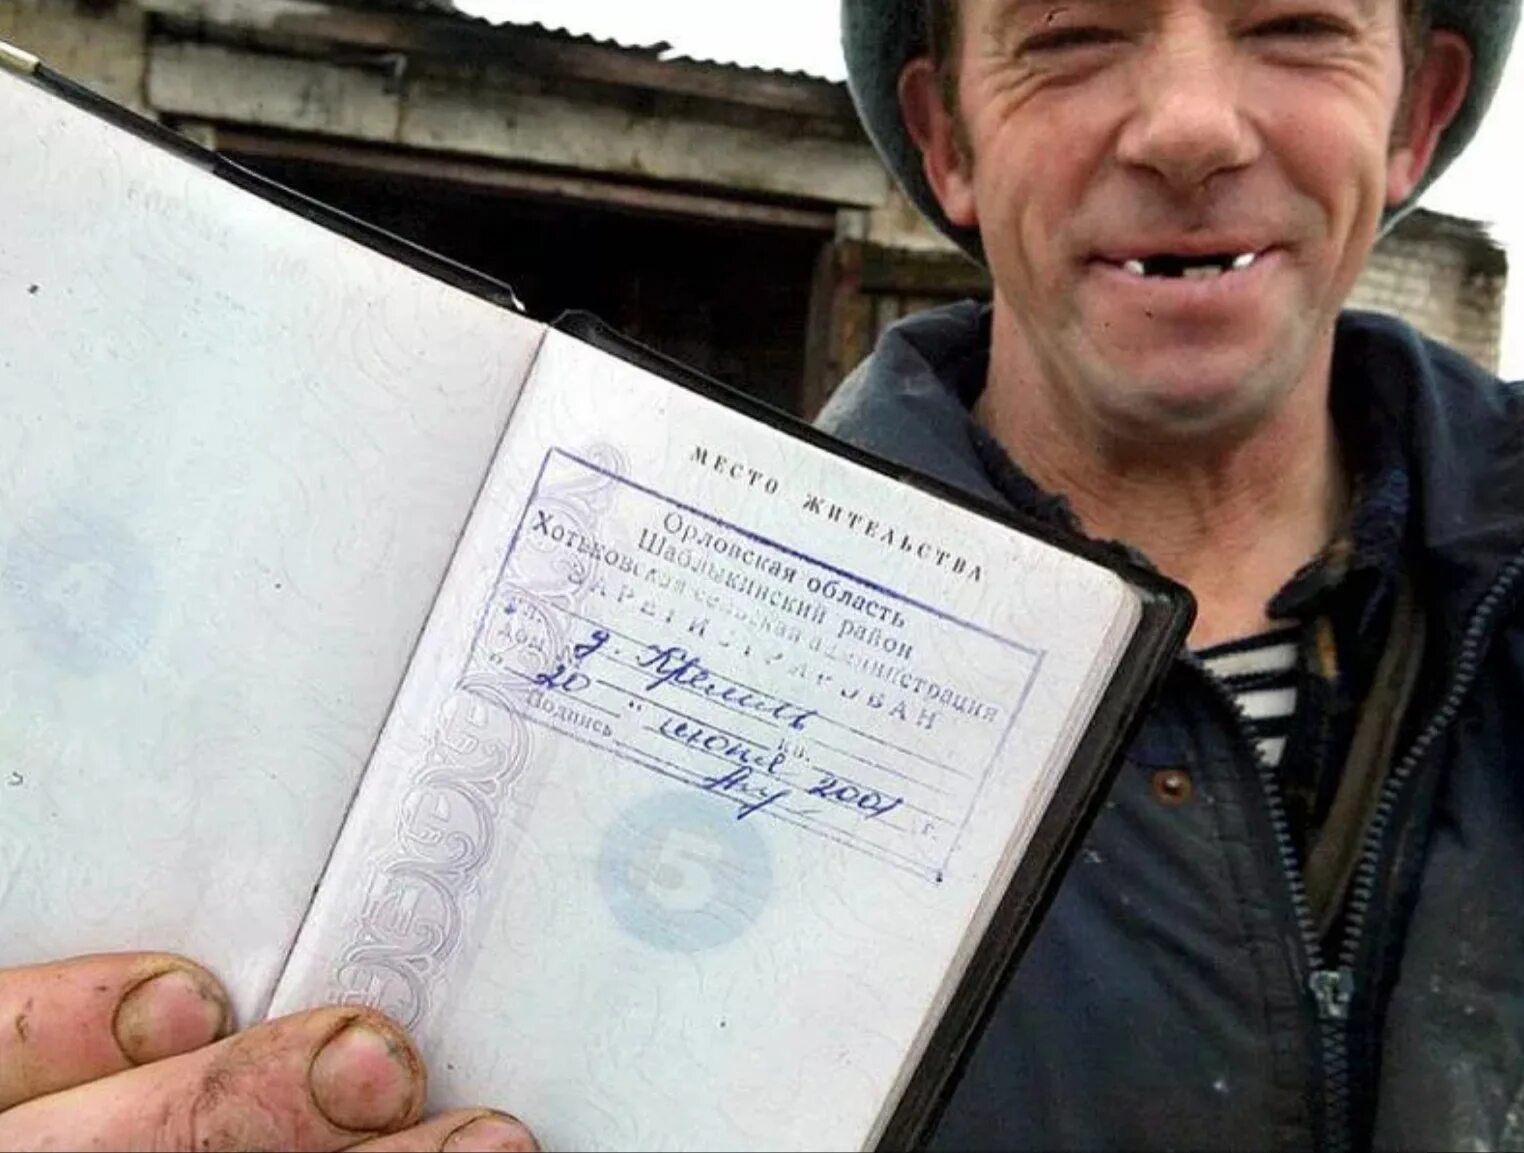 МЕСТО ЖИТЕЛЬСТВА
Орловская область
Шаблыкинский район
Хотьковская сельская администрация
ЗАРЕГИСТРИРОВАН
ул. д. Кремль
дом кв.
" 20 " июня 2001 г.
Подпись
5